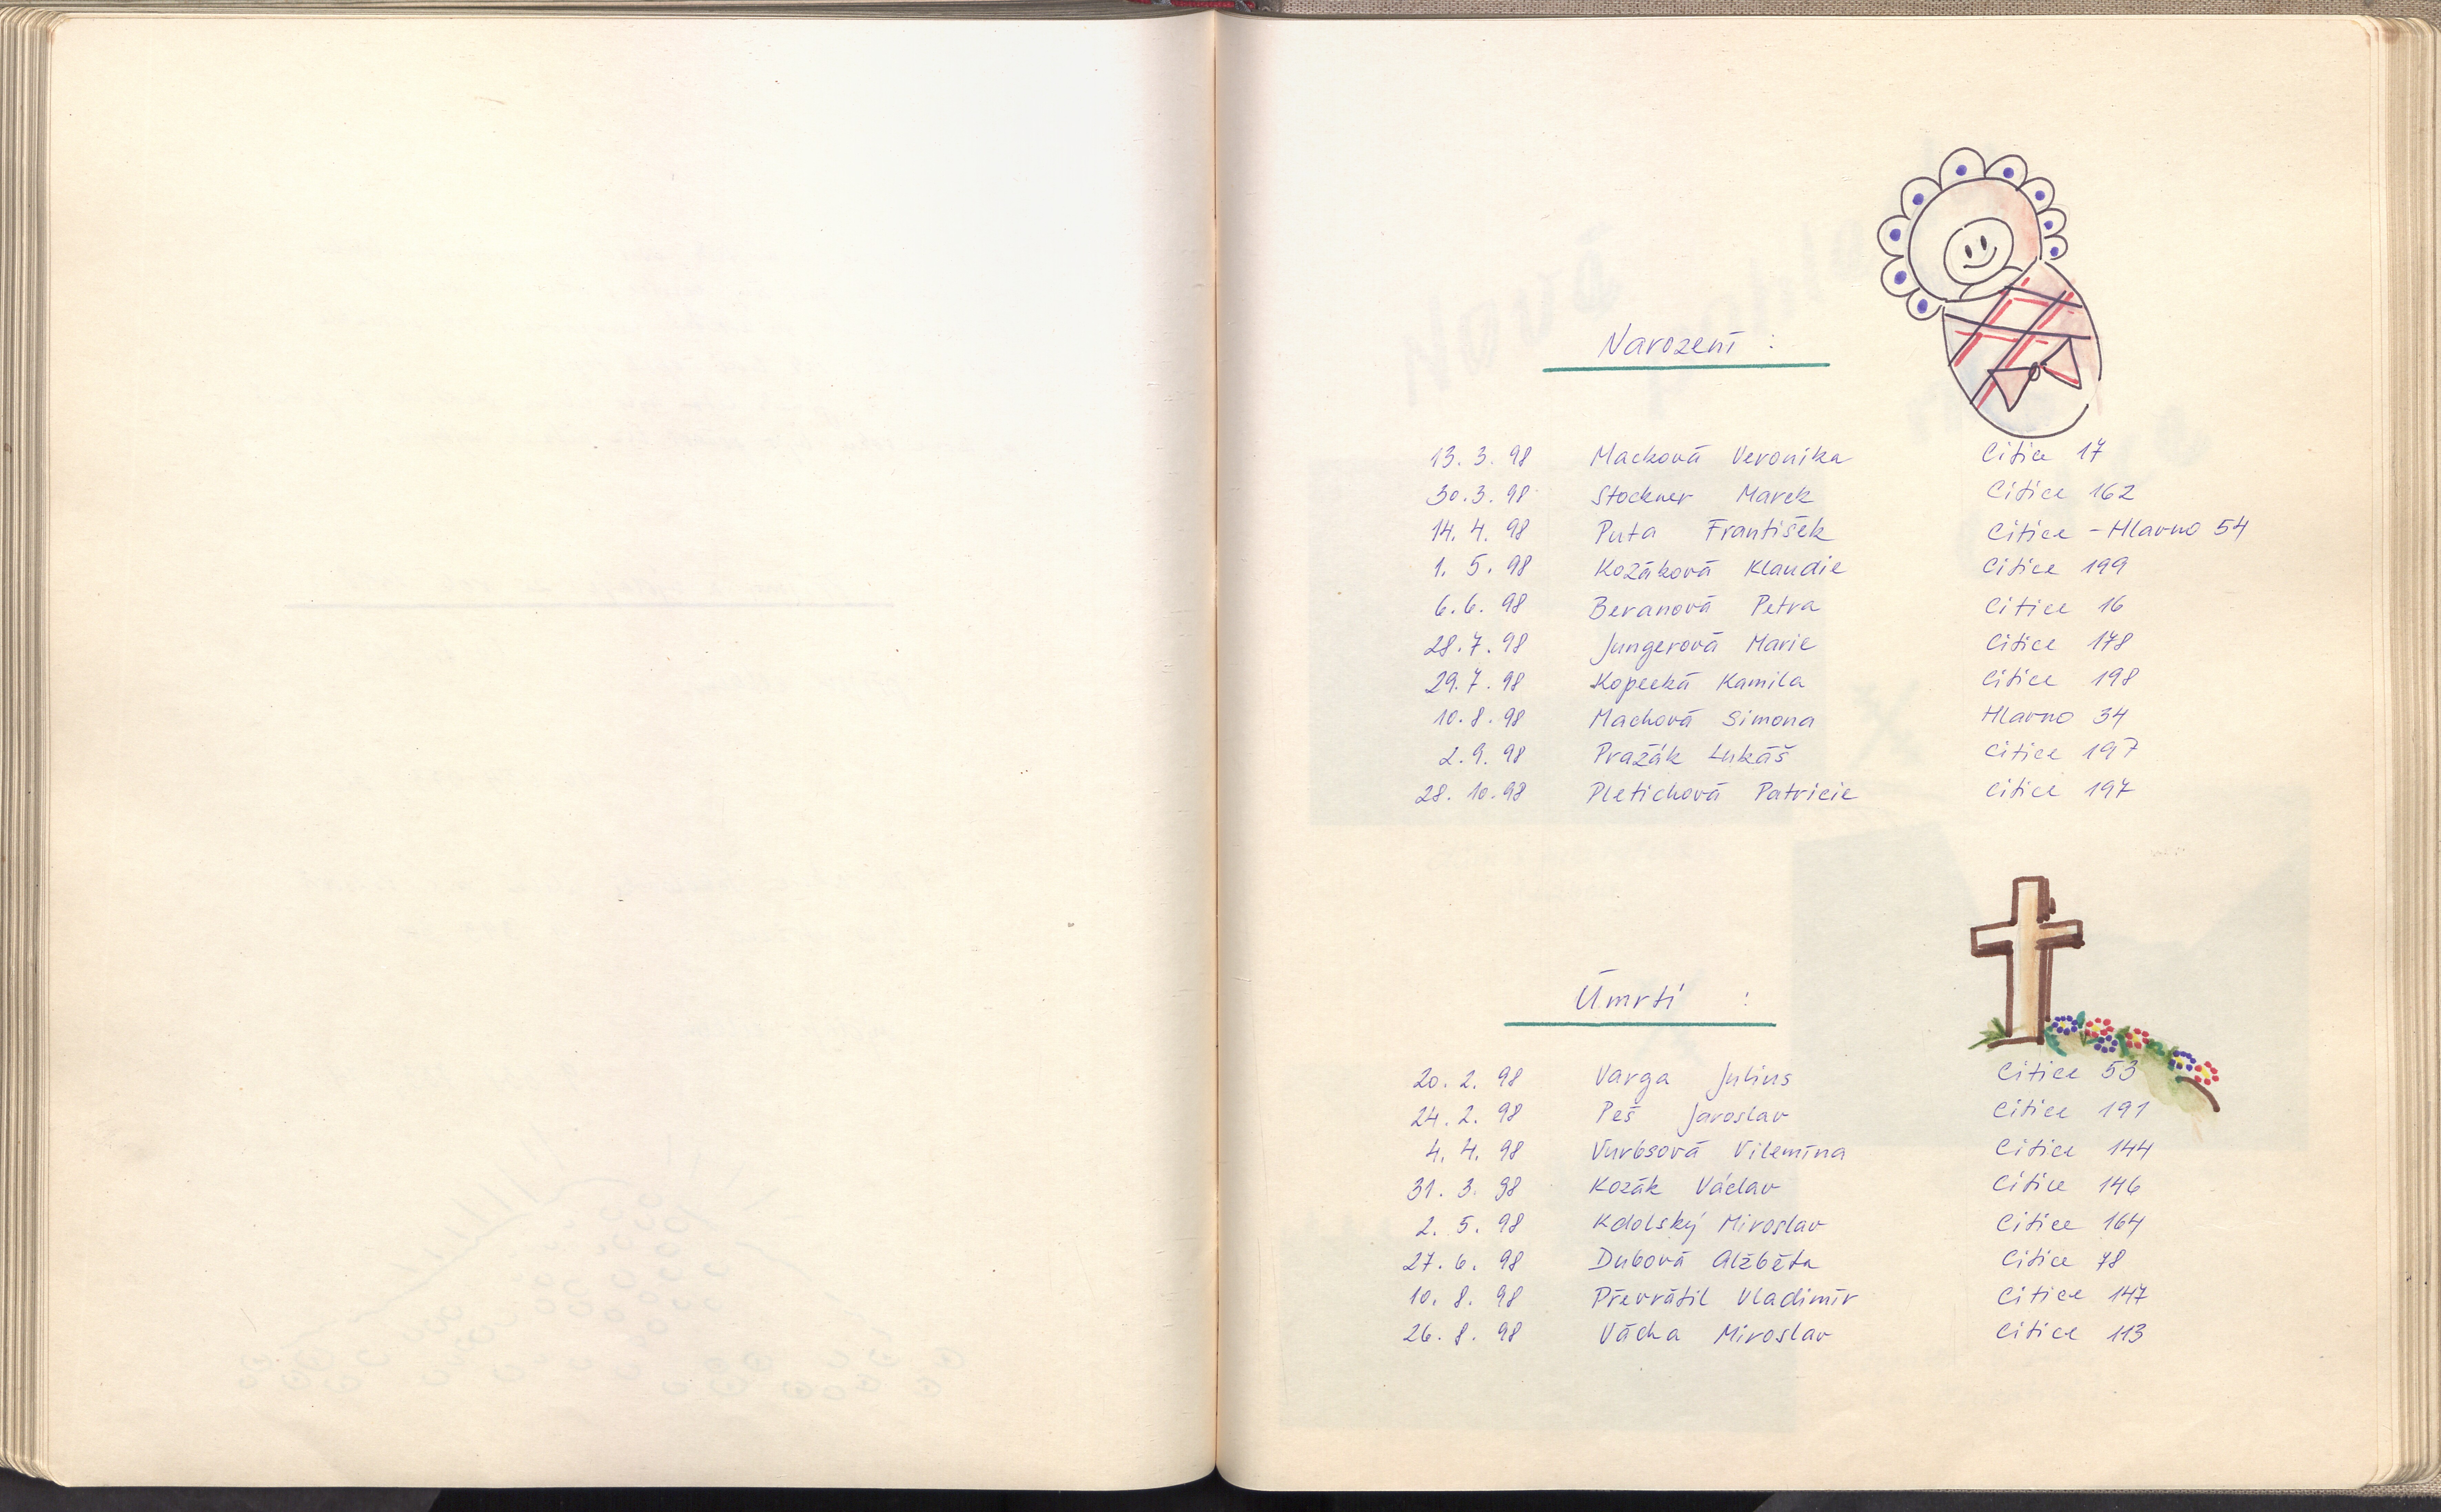 Narození :
13. 3. 98 Macková Veronika Citice 17
30. 3. 98 Stockner Marek Citice 162
14. 4. 98 Puta František Citice - Hlavno 54
1. 5. 98 Kozáková Klaudie Citice 199
6. 6. 98 Beranová Petra Citice 16
28. 7. 98 Jungerová Marie Citice 178
29. 7. 98 Kopecká Kamila Citice 198
10. 8. 98 Machová Simona Hlavno 34
2. 9. 98 Pražák Lukáš Citice 197
28. 10. 98 Pletichová Patricie Citice 197
Úmrtí :
20. 2. 98 Varga Julius Citice 53
24. 2. 98 Peš Jaroslav Citice 191
4. 4. 98 Vurbsová Vilemína Citice 144
31. 3. 98 Kozák Václav Citice 146
2. 5. 98 Kdolský Miroslav Citice 164
27. 6. 98 Dubová Alžběta Citice 78
10. 8. 98 Převrátil Vladimír Citice 147
26. 8. 98 Vácha Miroslav Citice 113